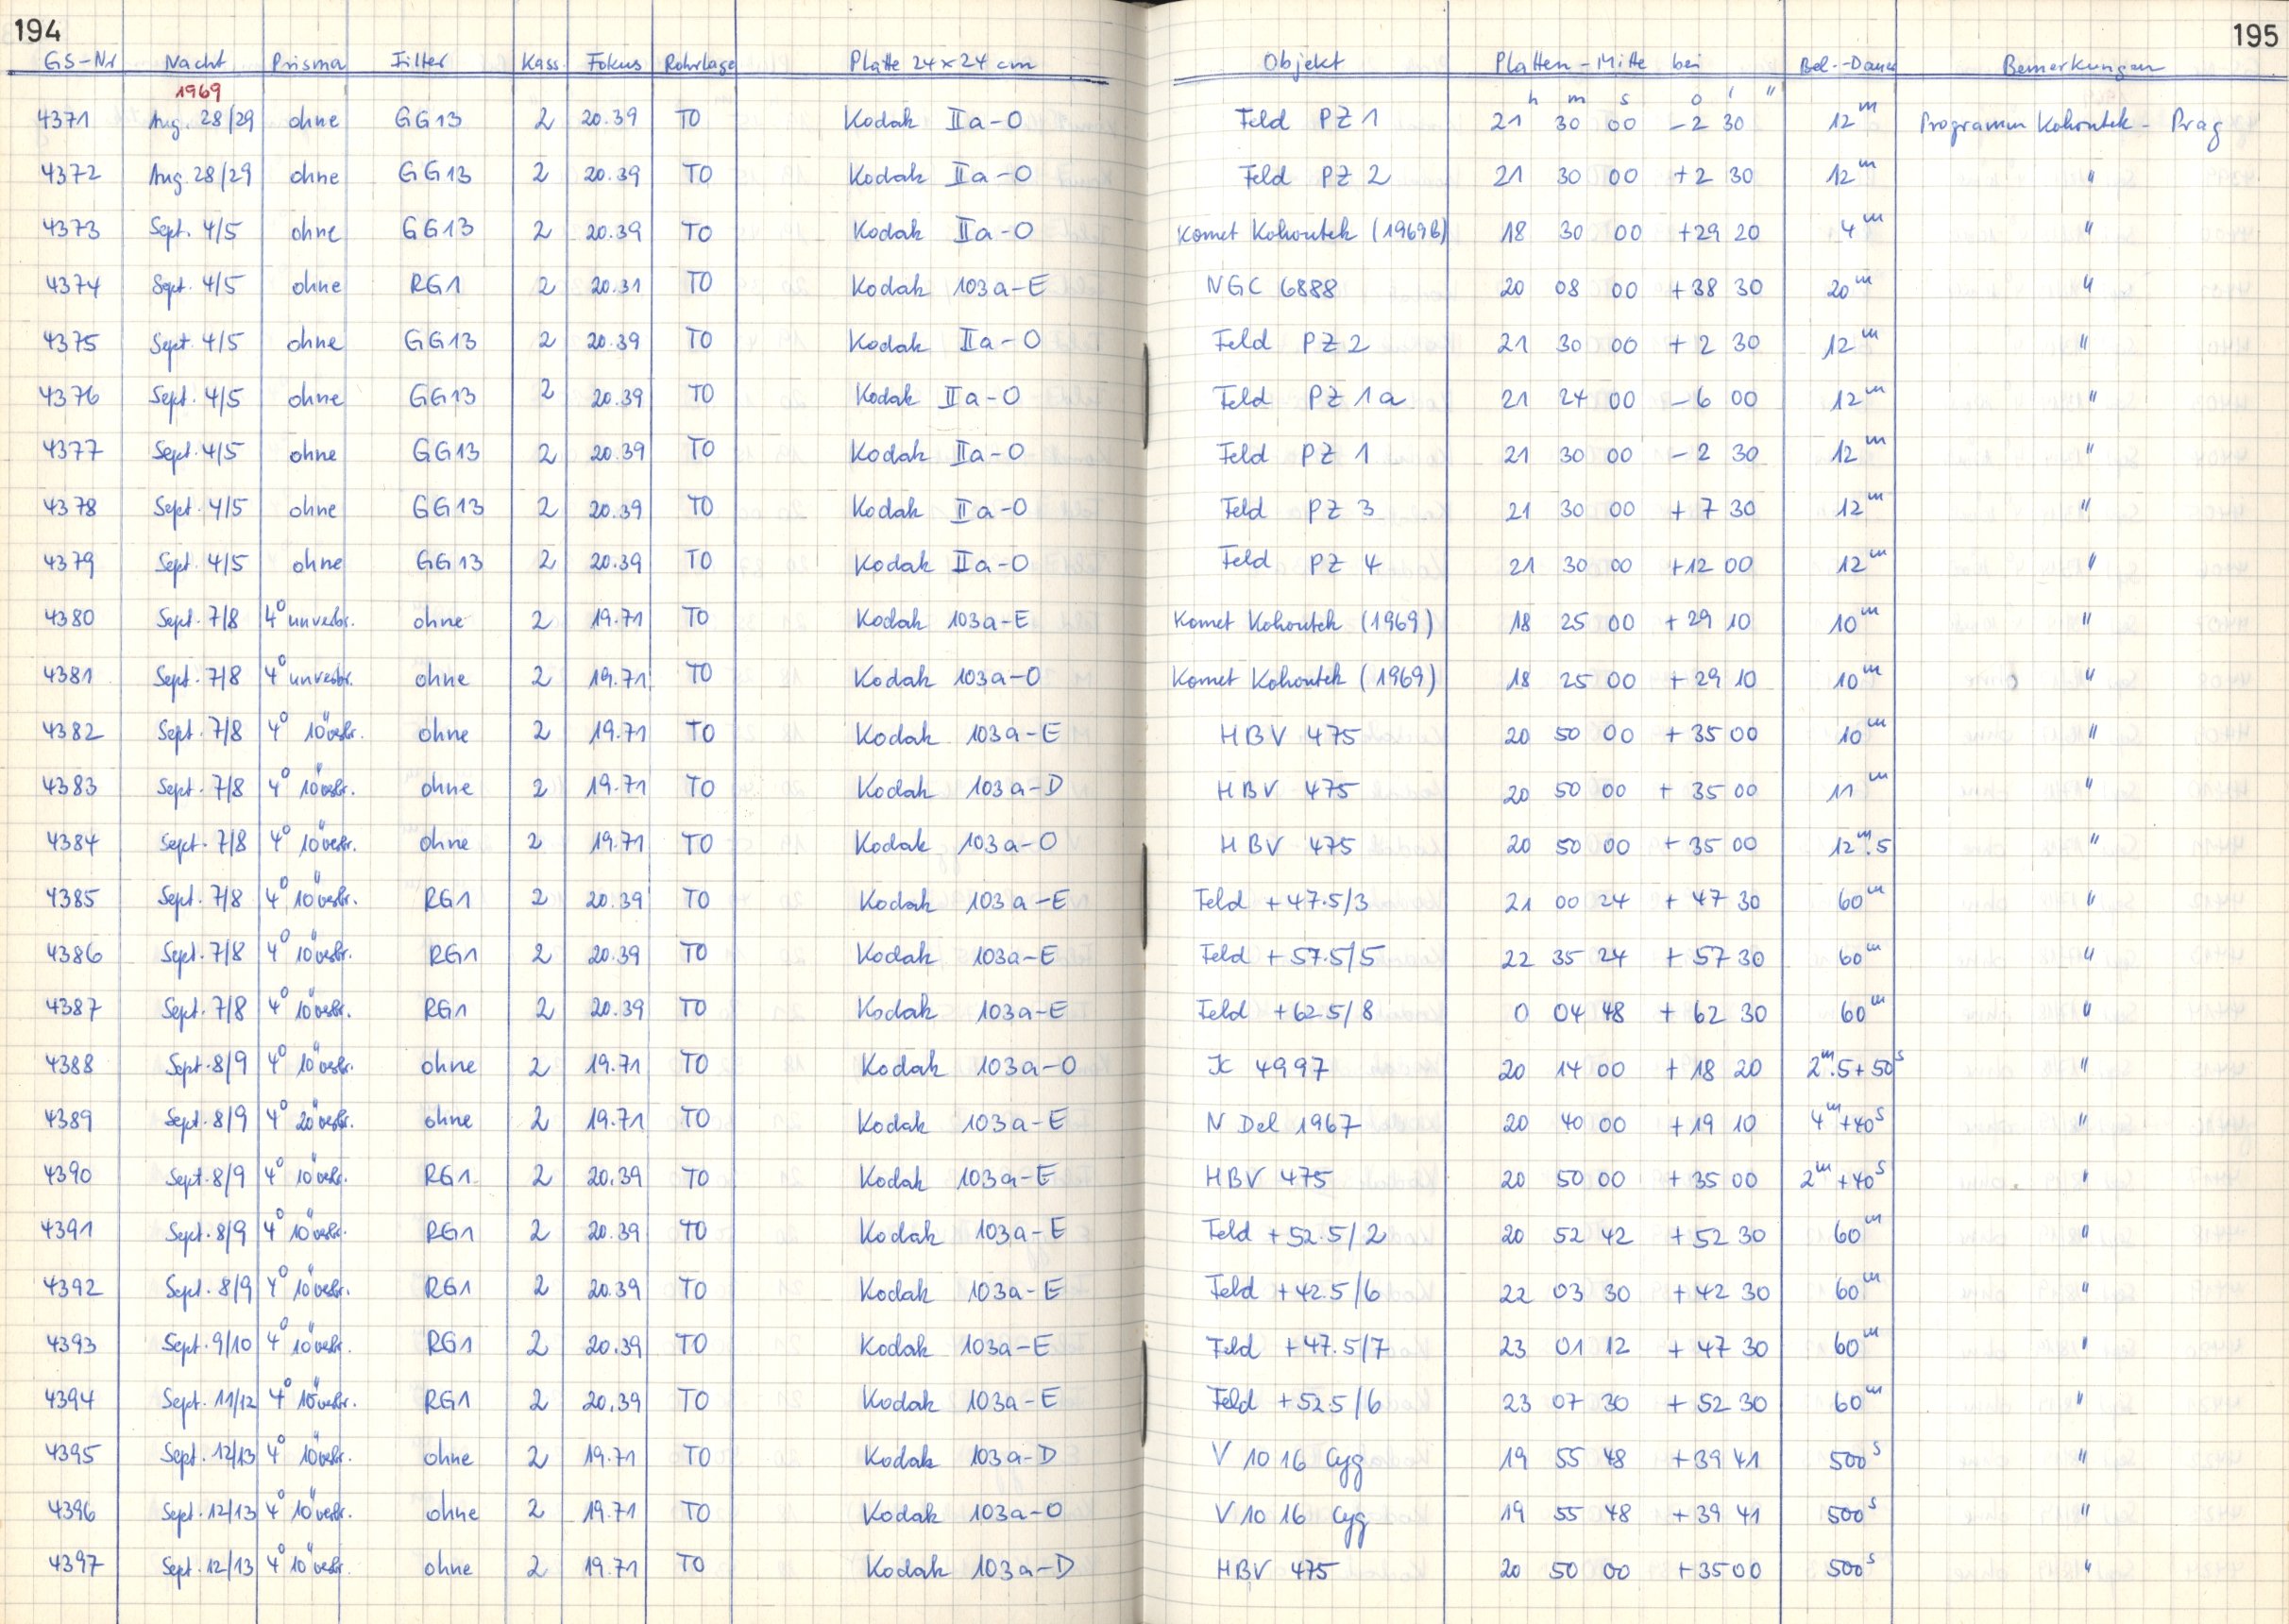 194 195
GS-Nr Nacht Prisma Filter Kass. Fokus Rohrlage Platte 24×24 cm Objekt Platten-Mitte bei Bel.-Dauer Bemerkungen
1969 h m s o ' "
4371 Aug. 28/29 ohne GG13 2 20.39 TO Kodak IIa-O Feld PZ 1 21 30 00 -2 30 12m Programm Kohoutek - Prag
4372 Aug. 28/29 ohne GG13 2 20.39 TO Kodak IIa-O Feld PZ 2 21 30 00 +2 30 12m "
4373 Sept. 4/5 ohne GG13 2 20.39 TO Kodak IIa-O Komet Kohoutek (1969b) 18 30 00 +29 20 4m "
4374 Sept. 4/5 ohne RG1 2 20.31 TO Kodak 103a-E NGC 6888 20 08 00 +38 30 20m "
4375 Sept. 4/5 ohne GG13 2 20.39 TO Kodak IIa-O Feld PZ 2 21 30 00 +2 30 12m "
4376 Sept. 4/5 ohne GG13 2 20.39 TO Kodak IIa-O Feld PZ 1a 21 24 00 -6 00 12m "
4377 Sept. 4/5 ohne GG13 2 20.39 TO Kodak IIa-O Feld PZ 1 21 30 00 -2 30 12m "
4378 Sept. 4/5 ohne GG13 2 20.39 TO Kodak IIa-O Feld PZ 3 21 30 00 +7 30 12m "
4379 Sept. 4/5 ohne GG13 2 20.39 TO Kodak IIa-O Feld PZ 4 21 30 00 +12 00 12m "
4380 Sept. 7/8 4° unverbr. ohne 2 19.71 TO Kodak 103a-E Komet Kohoutek (1969) 18 25 00 +29 10 10m "
4381 Sept. 7/8 4° unverbr. ohne 2 19.71 TO Kodak 103a-O Komet Kohoutek (1969) 18 25 00 +29 10 10m "
4382 Sept. 7/8 4° 10" verbr. ohne 2 19.71 TO Kodak 103a-E HBV 475 20 50 00 +35 00 10m "
4383 Sept. 7/8 4° 10" verbr. ohne 2 19.71 TO Kodak 103a-D HBV 475 20 50 00 +35 00 11m "
4384 Sept. 7/8 4° 10" verbr. ohne 2 19.71 TO Kodak 103a-O HBV 475 20 50 00 +35 00 12m.5 "
4385 Sept. 7/8 4° 10" verbr. RG1 2 20.39 TO Kodak 103a-E Feld +47.5/3 21 00 24 +47 30 60m "
4386 Sept. 7/8 4° 10" verbr. RG1 2 20.39 TO Kodak 103a-E Feld +57.5/5 22 35 24 +57 30 60m "
4387 Sept. 7/8 4° 10" verbr. RG1 2 20.39 TO Kodak 103a-E Feld +62.5/8 0 04 48 +62 30 60m "
4388 Sept. 8/9 4° 10" verbr. ohne 2 19.71 TO Kodak 103a-O IC 4997 20 14 00 +18 20 2m.5+50s "
4389 Sept. 8/9 4° 20" verbr. ohne 2 19.71 TO Kodak 103a-E N Del 1967 20 40 00 +19 10 4m+40s "
4390 Sept. 8/9 4° 10" verbr. RG1 2 20.39 TO Kodak 103a-E HBV 475 20 50 00 +35 00 2m+40s "
4391 Sept. 8/9 4° 10" verbr. RG1 2 20.39 TO Kodak 103a-E Feld +52.5/2 20 52 42 +52 30 60m "
4392 Sept. 8/9 4° 10" verbr. RG1 2 20.39 TO Kodak 103a-E Feld +42.5/6 22 03 30 +42 30 60m "
4393 Sept. 9/10 4° 10" verbr. RG1 2 20.39 TO Kodak 103a-E Feld +47.5/7 23 01 12 +47 30 60m "
4394 Sept. 11/12 4° 10" verbr. RG1 2 20.39 TO Kodak 103a-E Feld +52.5/6 23 07 30 +52 30 60m "
4395 Sept. 12/13 4° 10" verbr. ohne 2 19.71 TO Kodak 103a-D V 1016 Cyg 19 55 48 +39 41 500s "
4396 Sept. 12/13 4° 10" verbr. ohne 2 19.71 TO Kodak 103a-O V 1016 Cyg 19 55 48 +39 41 500s "
4397 Sept. 12/13 4° 10" verbr. ohne 2 19.71 TO Kodak 103a-D HBV 475 20 50 00 +35 00 500s "